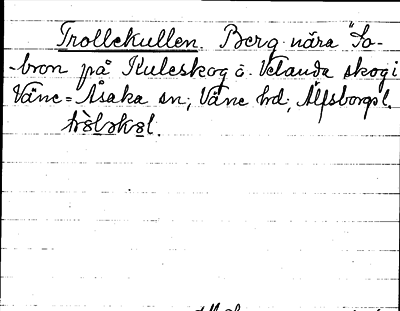 Trollekullen. Berg nära "So-
-bron på Kuleskog o. Velanda skog i
Väne-Åsaka sn; Väne hd; Älfsborgs l.